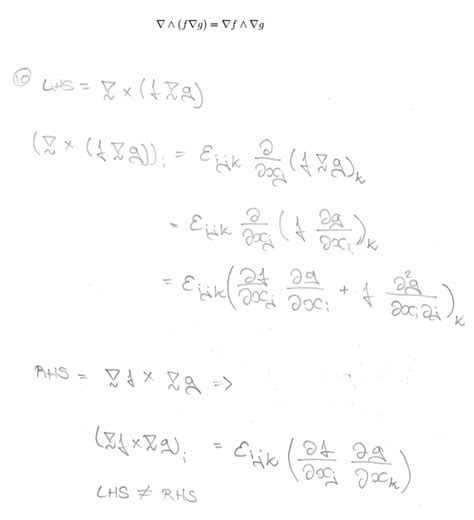 ∇ ∧ (f∇g) = ∇f ∧ ∇g
10 LHS = ∇ × (f ∇g)
(∇ × (f ∇g))i = εijk ∂/∂xj (f ∇g)k
= εijk ∂/∂xj (f ∂g/∂xi)k
= εijk (∂f/∂xj ∂g/∂xi + f ∂²g/∂xi∂j)k
RHS = ∇f × ∇g =>
(∇f × ∇g)i = εijk (∂f/∂xj ∂g/∂xk)
LHS ≠ RHS